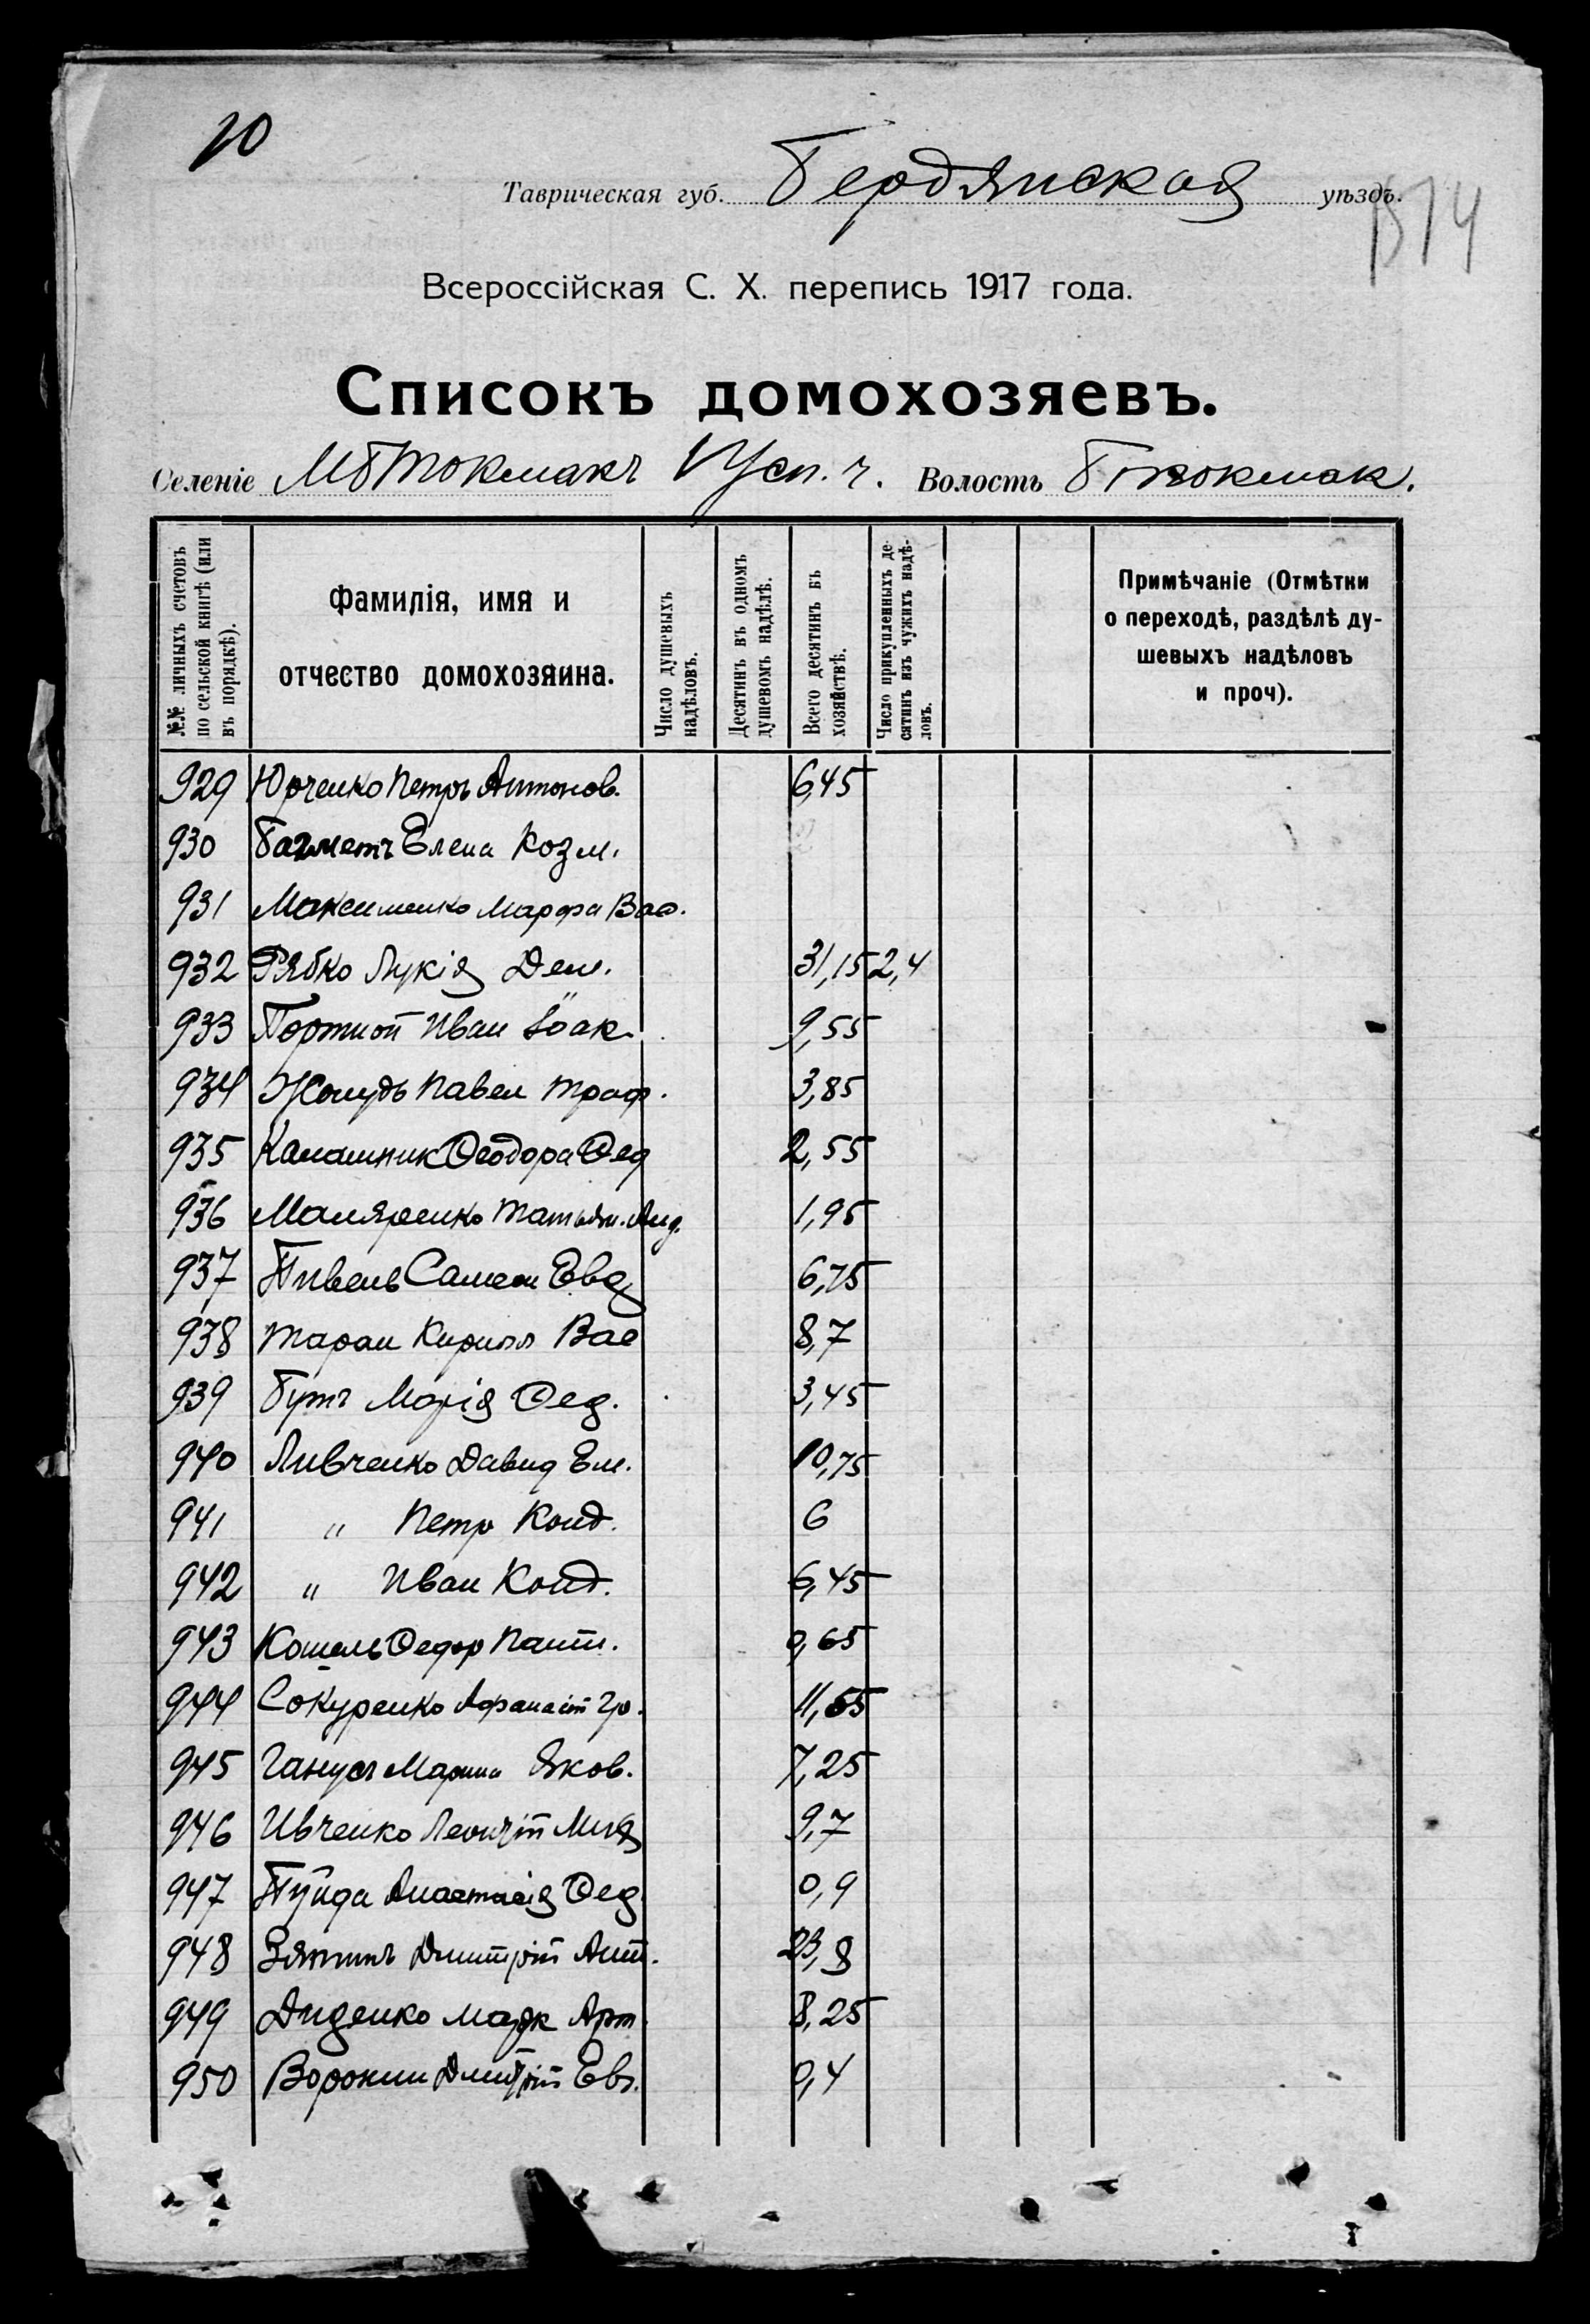 10
Таврическая губ. Бердянская уѣздъ.
Всероссійская С. Х. перепись 1917 года.
Списокъ домохозяевъ.
Селеніе МбТокмакъ Усп. ч. Волость Бтокмак.
№№ личныхъ счетовъ по сельской книгѣ (или въ порядкѣ).
Фамилія, имя и отчество домохозяина.
Число душевыхъ надѣловъ.
Десятинъ въ одномъ душевомъ надѣлѣ.
Всего десятинъ въ хозяйствѣ.
Число прикупленныхъ десятинъ изъ чужихъ надѣловъ.
Примѣчаніе (Отмѣтки о переходѣ, раздѣлѣ душевыхъ надѣловъ и проч).
929 Юрченко Петръ Антонов. 6,45
930 Багметъ Елена Козм.
931 Максименко Марфа Вас.
932 Рябко Лукія Дем. 31,15 2,4
933 Портной Иван 9,55
934 Жолудь Павел Троф. 3,85
935 Калашник Феодора Фед 2,55
936 Маляренко Татьян. Анд. 1,95
937 Пивель Самсон Евд 6,75
938 Таран Кирилл Вас 8,7
939 Бутъ Марія Фед. 3,45
940 Ливченко Давид Ем. 10,75
941 " Петр Конд. 6
942 " Иван Конд. 6,45
943 Кошель Федор Пант. 0,65
944 Сокуренко Афанасій Гр. 11,55
945 Ганусъ Марина Яков. 7,25
946 Ивченко Леонтій 9,7
947 Анастасія Фед 0,9
948 Зятинъ Дмитрій Ант. 23,8
949 Диденко Марк Арт 8,25
950 Воронин Дмитрій Евг. 0,4